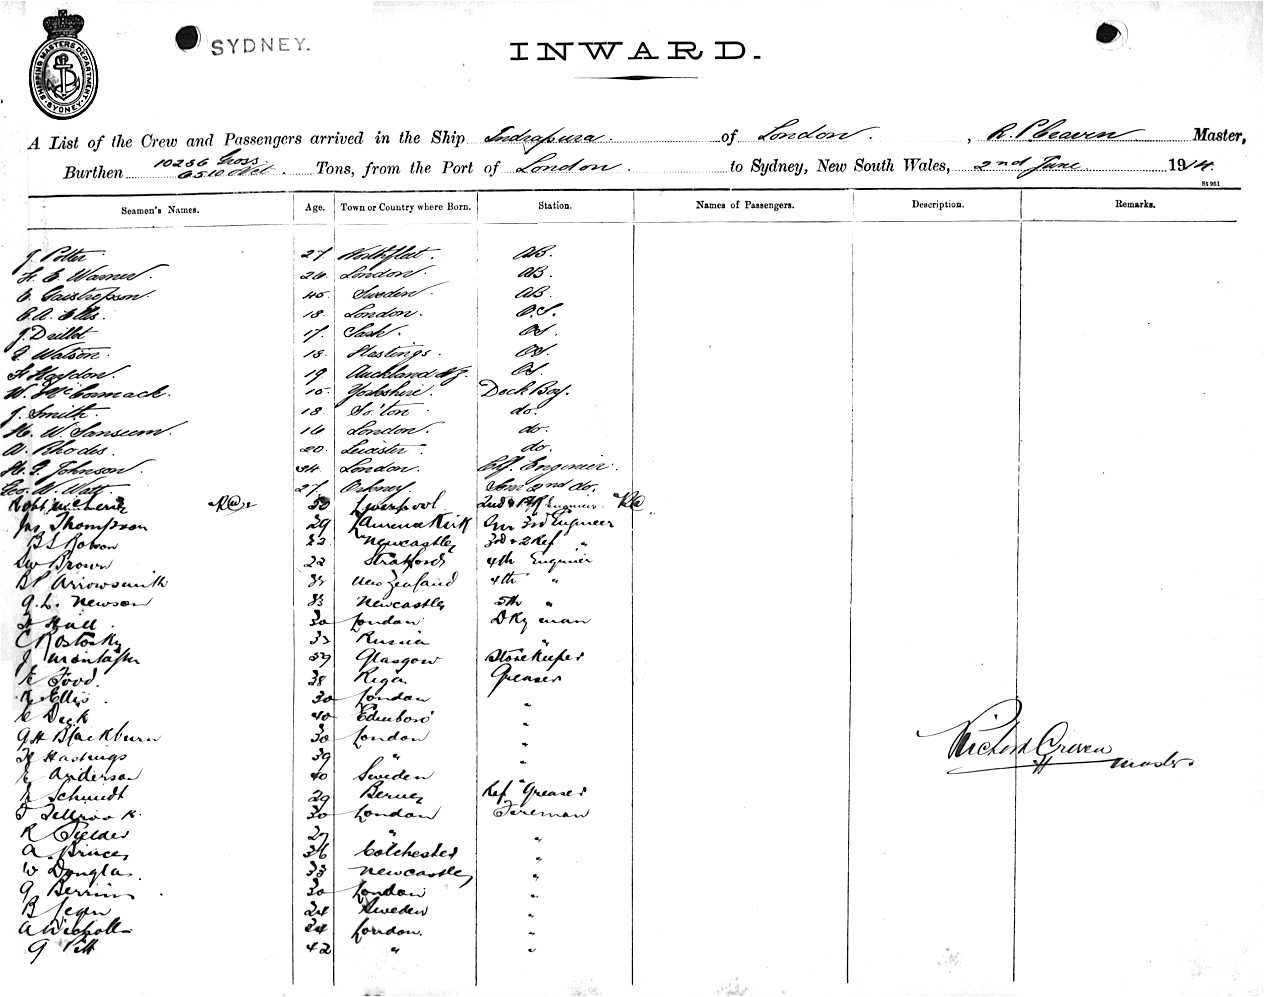 SHIPPING MASTERS DEPARTMENT SYDNEY
SYDNEY.
INWARD.
A List of the Crew and Passengers arrived in the Ship Indrapura. of London. , R. P. Craven Master,
Burthen 10286 Gross Tons, from the Port of London. to Sydney, New South Wales, 2nd June 1914.
6510 Net
Seamen's Names. Age. Town or Country where Born. Station. Names of Passengers. Description. Remarks.
J. Potter 27 Northfleet. AB.
H. E. Warner. 26 London. AB.
45 Sweden. AB.
C. A. Ellis. 18 London. O.S.
J. 17. OS.
Watson. 18 Hastings. OS.
H Haydon. 19 Auckland NZ. OS.
W. McCormack. 15 Yorkshire. Deck Boy.
J. Smith. 18 So'ton. do.
H. W. Sansum. 16 London. do.
A. Rhodes. 20. Leicester. do.
H. J. Johnson. 34. London. Engineer.
Geo. W. Watt 27 Orkney 2nd do.
Liverpool. 2nd Engineer
Jas Thompson 29 Laurencekirk 3rd Engineer
Robson Newcastle 3rd & 2 Ref "
Brown 22 Stratford 4th Engineer
Arrowsmith New Zealand 4th "
G. L. Newson Newcastle 5th "
Hall 30 London Dky man
C Rostosky Russia "
J 59 Glasgow Storekeeper
Food. 38 Riga Greaser
Ellis 30 London "
C Deck 40 Edinboro' "
G H Blackburn 30 London "
H Hastings 39 " "
Anderson 40 Sweden "
Schmidt 29 Berne Ref Greaser
30 London Fireman
R Fielder 27 " "
A. Bruce 36 Colchester "
W Douglas. 33 Newcastle "
G 30 London "
B 24 Sweden "
A Nicholls 24 London. "
G Pitt 42 " "
Richard Craven
Master